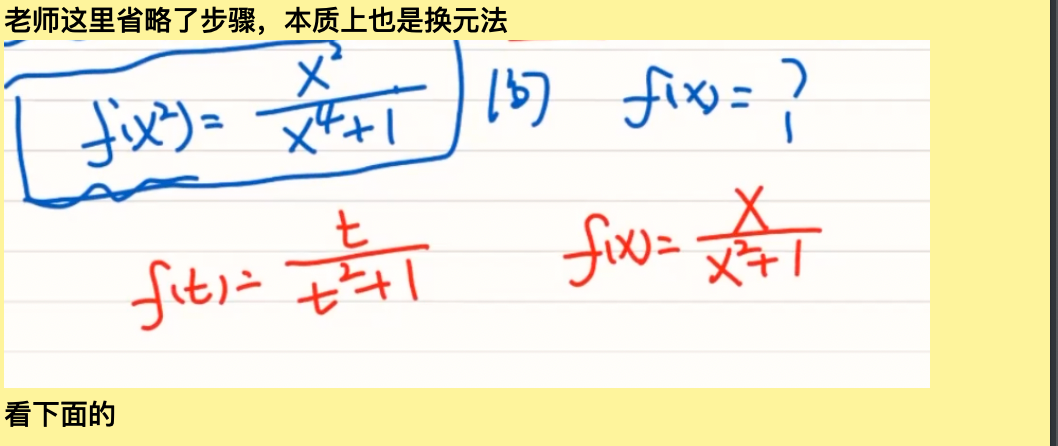 老师这里省略了步骤，本质上也是换元法
f(x²) = x²/(x⁴+1) (例) f(x) = ?
f(t) = t/(t²+1) f(x) = x/(x²+1)
看下面的